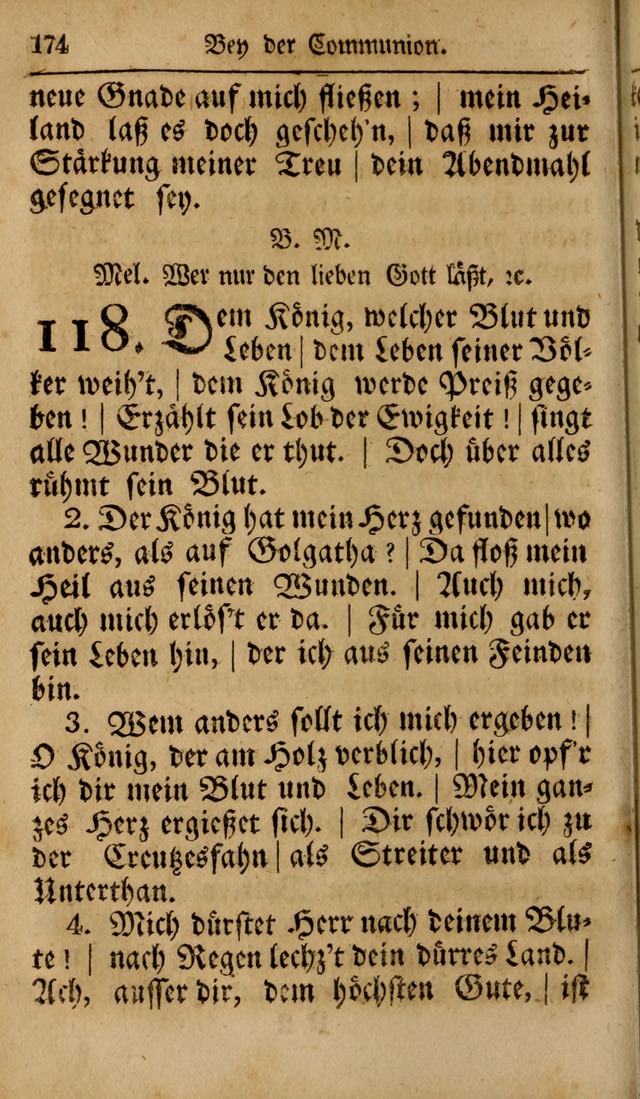 174 Bey der Communion.
neue Gnade auf mich fließen ; | mein Hei-
land laß es doch gescheh'n, | daß mir zur
Stärkung meiner Treu | dein Abendmahl
gesegnet sey.
B. M.
Mel. Wer nur den lieben Gott läßt, ꝛc.
118. Dem König, welcher Blut und
Leben | dem Leben seiner Völ-
ker weih't, | dem König werde Preiß gege-
ben ! | Erzählt sein Lob der Ewigkeit ! | singt
alle Wunder die er thut. | Doch über alles
rühmt sein Blut.
2. Der König hat mein Herz gefunden | wo
anders, als auf Golgatha ? | Da floß mein
Heil aus seinen Wunden. | Auch mich,
auch mich erlös't er da. | Für mich gab er
sein Leben hin, | der ich aus seinen Feinden
bin.
3. Wem anders sollt ich mich ergeben ! |
O König, der am Holz verblich, | hier opf'r
ich dir mein Blut und Leben. | Mein gan-
zes Herz ergießet sich. | Dir schwör ich zu
der Creutzesfahn | als Streiter und als
Unterthan.
4. Mich dürstet Herr nach deinem Blu-
te ! | nach Regen lechz't dein dürres Land. |
Ach, ausser dir, dem höchsten Gute, | ist